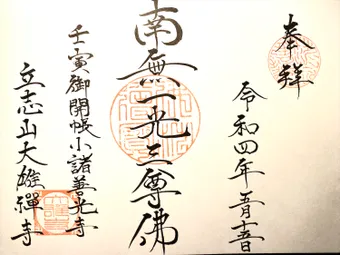 奉拝
令和四年五月十五日
南無一光三尊佛
壬寅御開帳小諸善光寺
立志山大雄禪寺